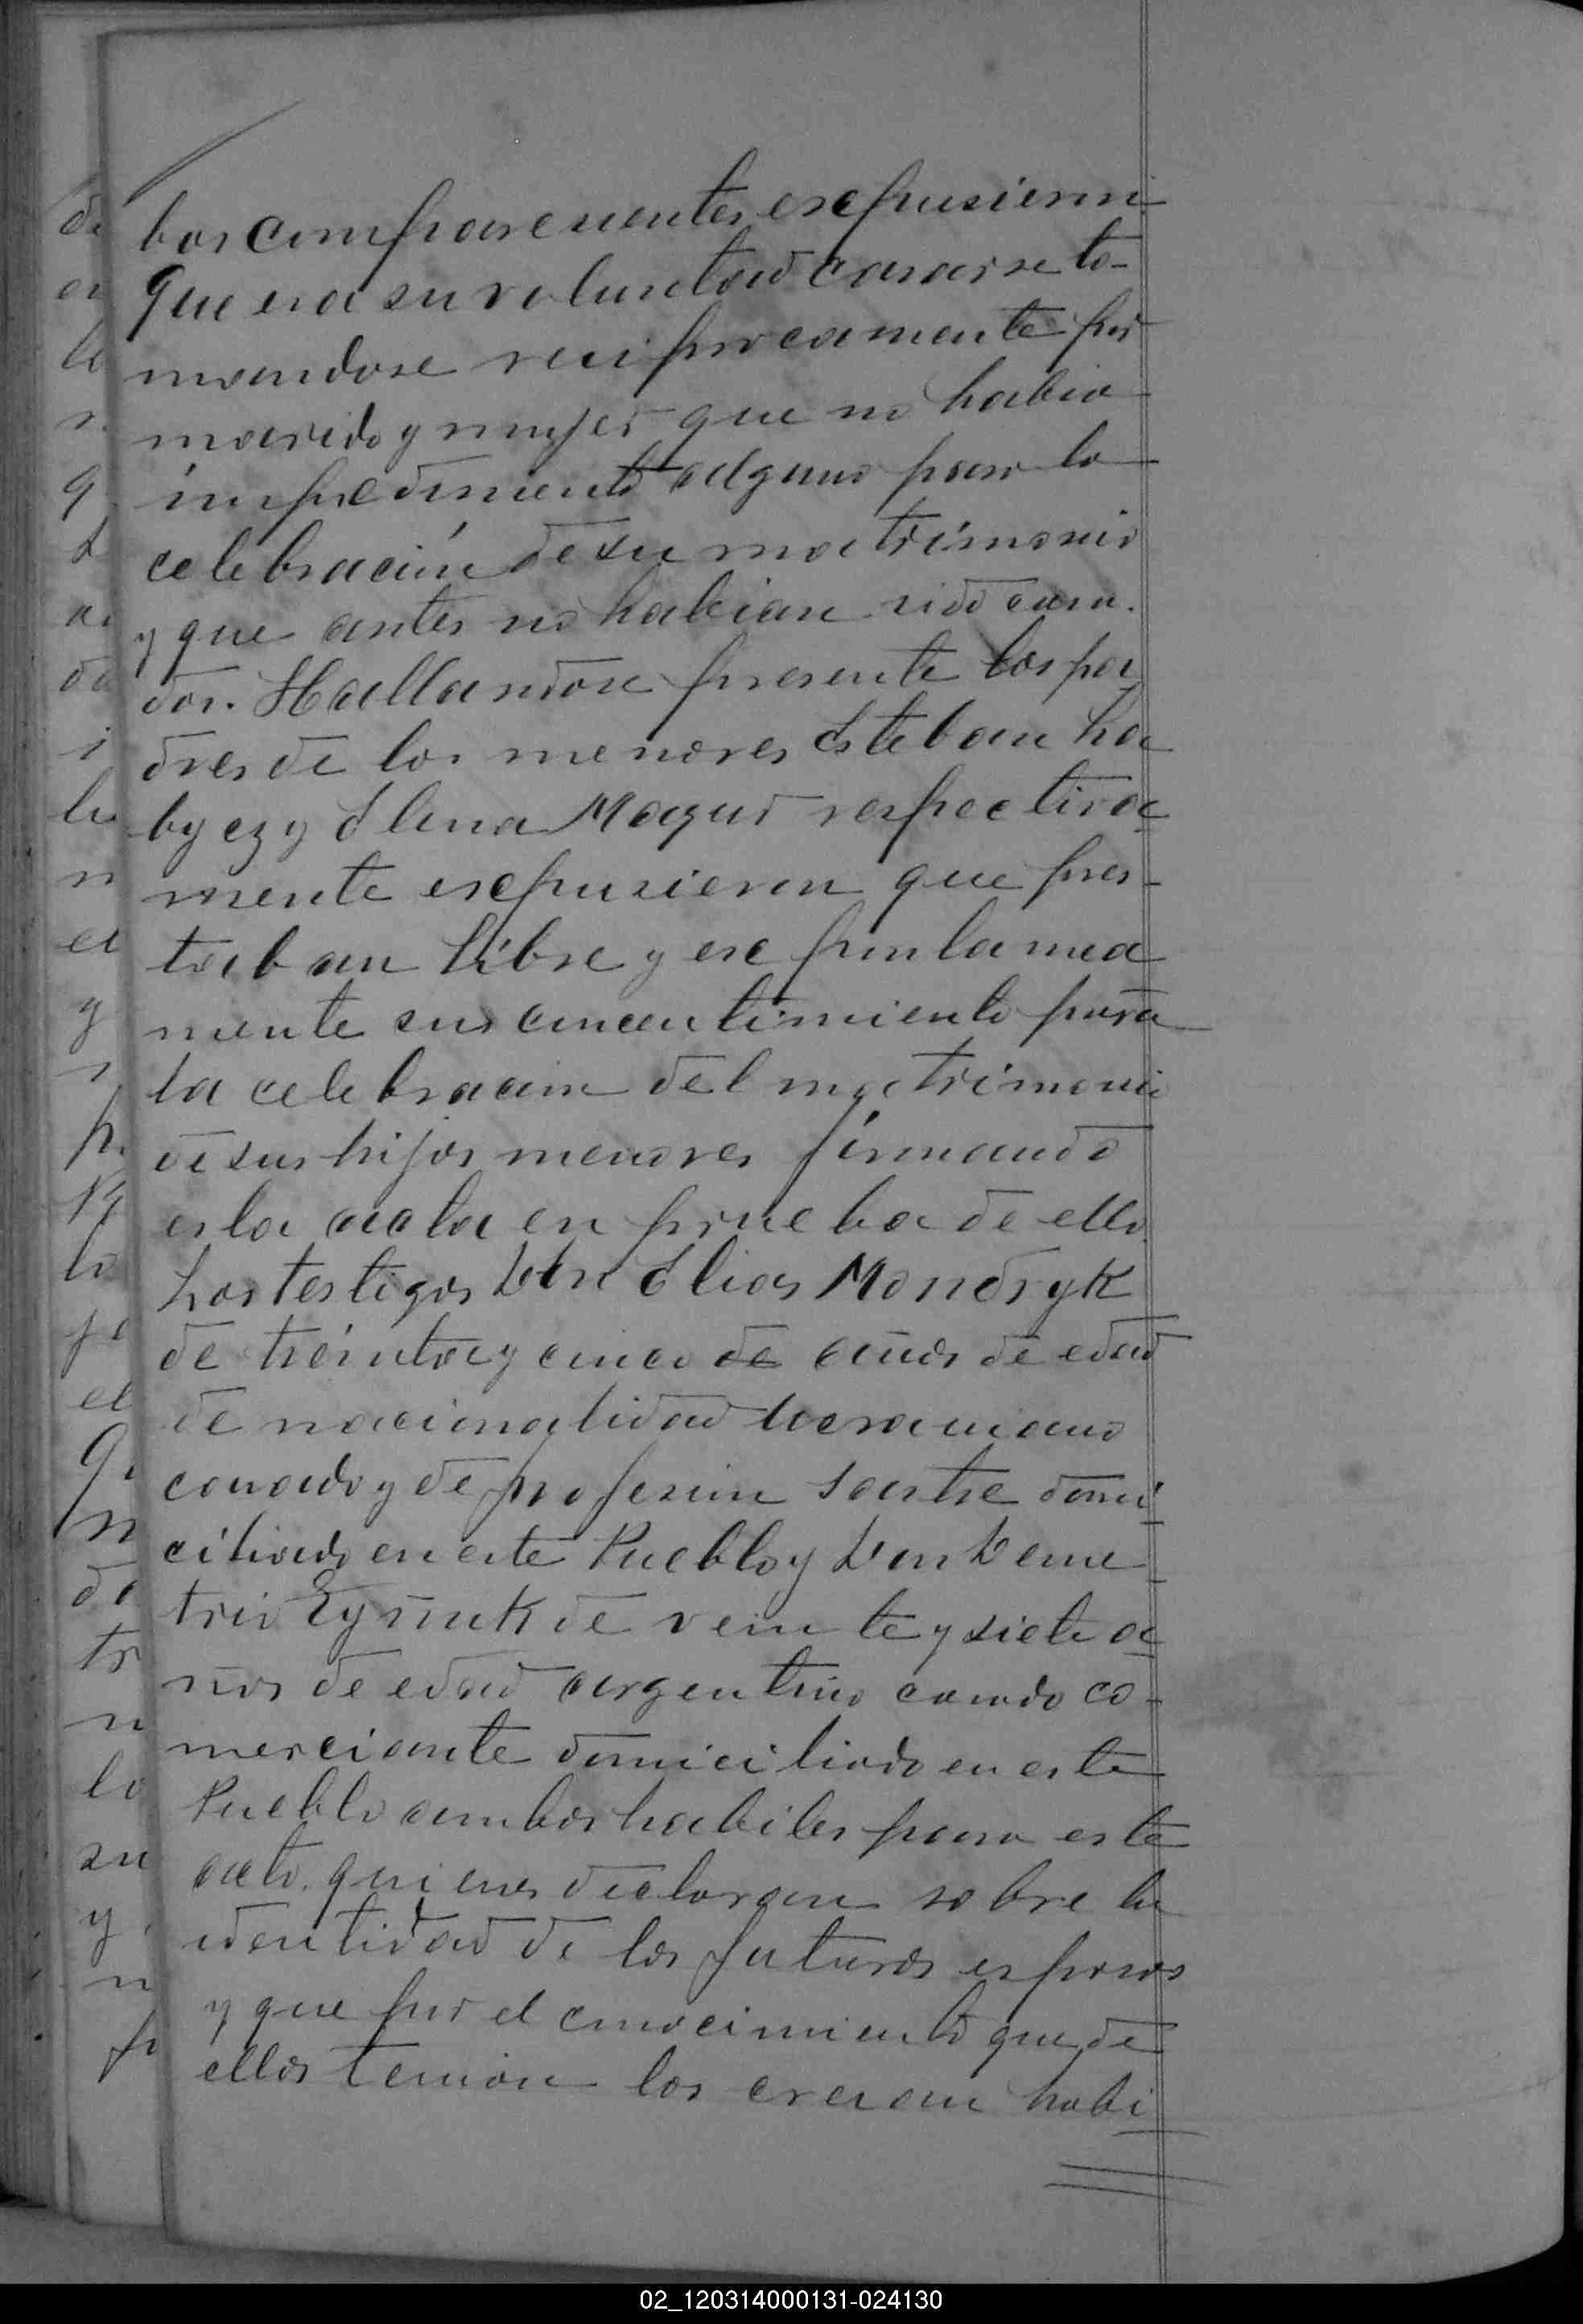 bos comparecientes expusieron
que era su voluntad casarse to-
mandose reciprocamente por
marido y mujer que no habia
impedimento alguno para la
celebración de su matrimonio
y que antes no habian sido casa-
dos. Hallandose presente los pa
dres de los menores Esteban Ha
byez y Elena Mazur respectiva
mente expusieron que pres-
taban libre y expontanea
mente su concentimiento para
la celebracion del matrimonio
de sus hijos menores firmando
esta acta en prueba de ello
Los testigos Don Elias Mondryk
de treinta y cinco de años de edad
de nacionalidad Ucraniano
casado y de profesion Sastre domi
ciliado en este Pueblo y Don Deme
trio de veinte y siete a
ños de edad argentino casado co-
merciante domiciliado en este
Pueblo ambos habiles para este
acto. quienes declaran sobre la
identidad de los futuros esposos
y que por el conocimiento que de
ellos tenian los creian habi
02_120314000131-024130